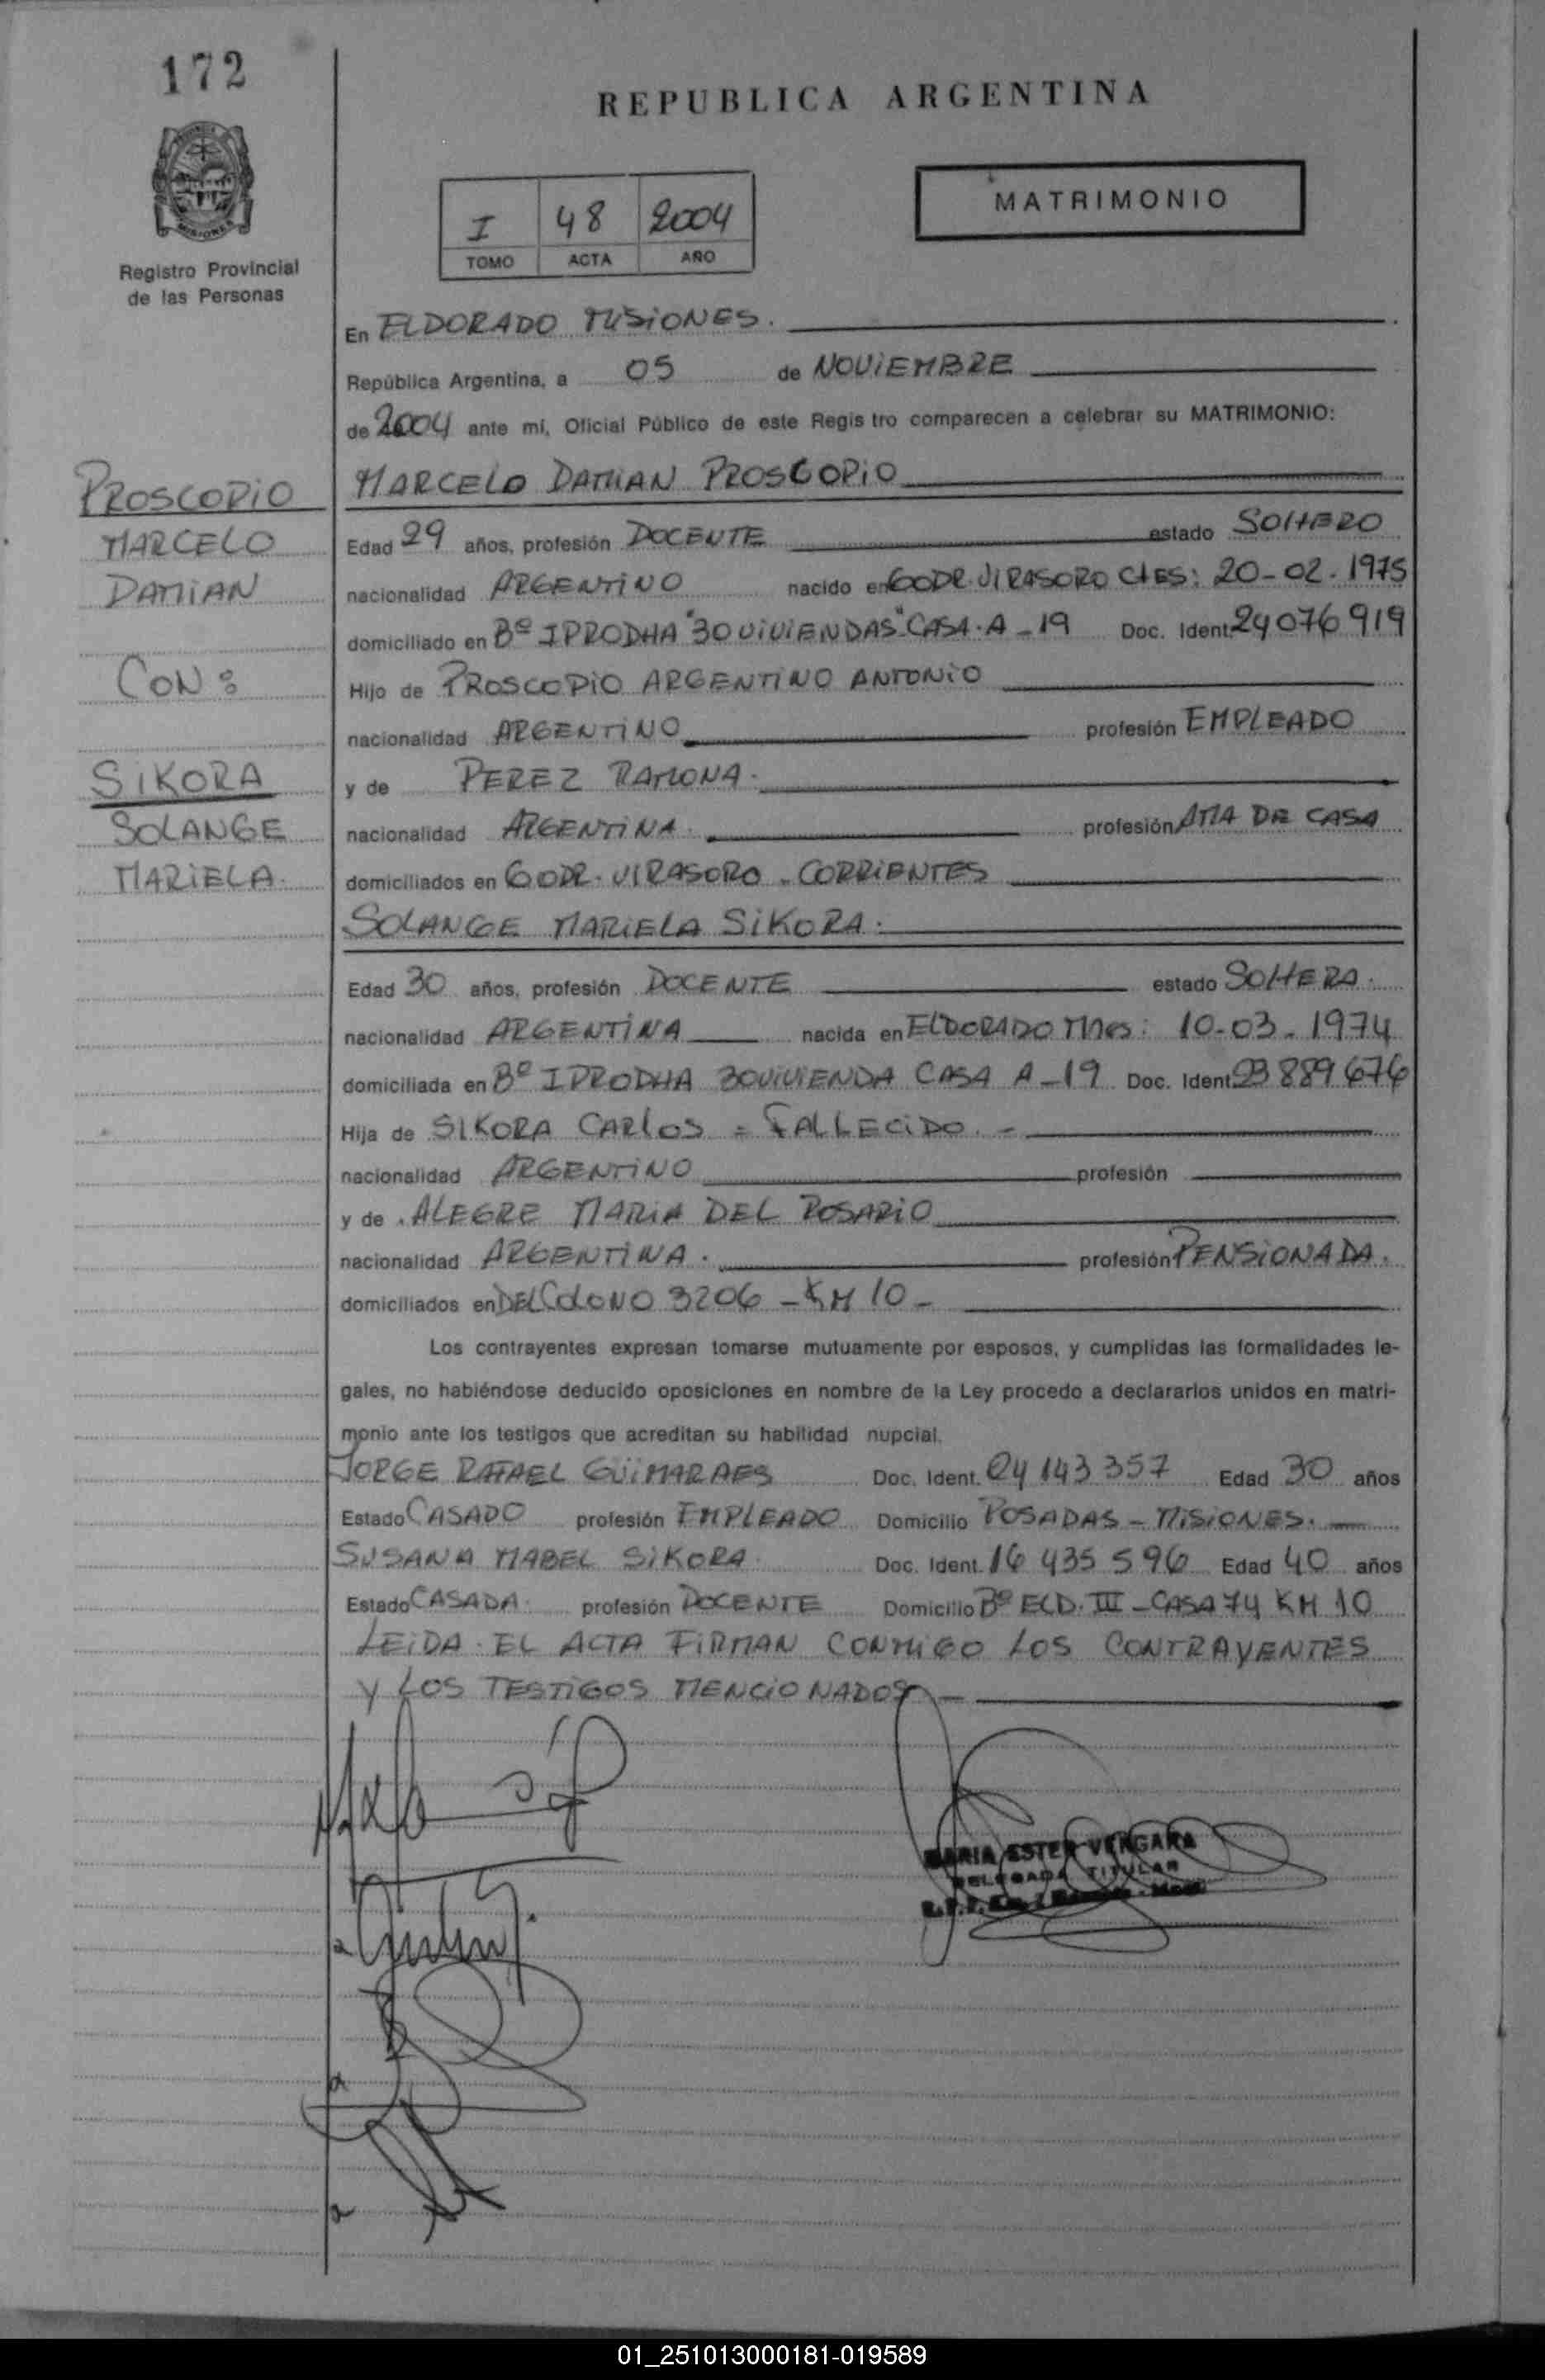 172
REPUBLICA ARGENTINA
MISIONES
Registro Provincial
de las Personas
I 48 2004
TOMO ACTA AÑO
MATRIMONIO
En ELDORADO MISIONES.
República Argentina, a 05 de NOVIEMBRE
de 2004 ante mí, Oficial Público de este Regis tro comparecen a celebrar su MATRIMONIO:
PROSCOPIO
MARCELO
DAMIAN
CON:
SIKORA
SOLANGE
MARIELA.
MARCELO DAMIAN PROSCOPIO
Edad 29 años, profesión DOCENTE estado SOLTERO
nacionalidad ARGENTINO nacido en GODR. VIRASORO CTES: 20-02-1975
domiciliado en Bº IPRODHA "30 VIVIENDAS" CASA A-19 Doc. Ident. 24 076 919
Hijo de PROSCOPIO ARGENTINO ANTONIO
nacionalidad ARGENTINO profesión EMPLEADO
y de PEREZ RAMONA.
nacionalidad ARGENTINA. profesión AMA DE CASA
domiciliados en GODR. VIRASORO - CORRIENTES
SOLANGE MARIELA SIKORA.
Edad 30 años, profesión DOCENTE estado SOLTERA.
nacionalidad ARGENTINA nacida en ELDORADO Mnes: 10-03-1974
domiciliada en Bº IPRODHA 30 VIVIENDA CASA A-19 Doc. Ident. 23 889 676
Hija de SIKORA CARLOS = FALLECIDO. -
nacionalidad ARGENTINO profesión
y de ALEGRE MARIA DEL ROSARIO
nacionalidad ARGENTINA. profesión PENSIONADA.
domiciliados en DEL COLONO 3206 - KM 10 -
Los contrayentes expresan tomarse mutuamente por esposos, y cumplidas las formalidades le-
gales, no habiéndose deducido oposiciones en nombre de la Ley procedo a declararlos unidos en matri-
monio ante los testigos que acreditan su habilidad nupcial.
JORGE RAFAEL GUIMARAES Doc. Ident. 24 143 357 Edad 30 años
Estado CASADO profesión EMPLEADO Domicilio POSADAS - MISIONES.
SUSANA MABEL SIKORA. Doc. Ident. 16 435 596 Edad 40 años
Estado CASADA. profesión DOCENTE Domicilio Bº ELD. III - CASA 74 KM 10
LEIDA EL ACTA FIRMAN CONMIGO LOS CONTRAYENTES
Y LOS TESTIGOS MENCIONADOS -
MARIA ESTER VERGARA
DELEGADA TITULAR
01_251013000181-019589